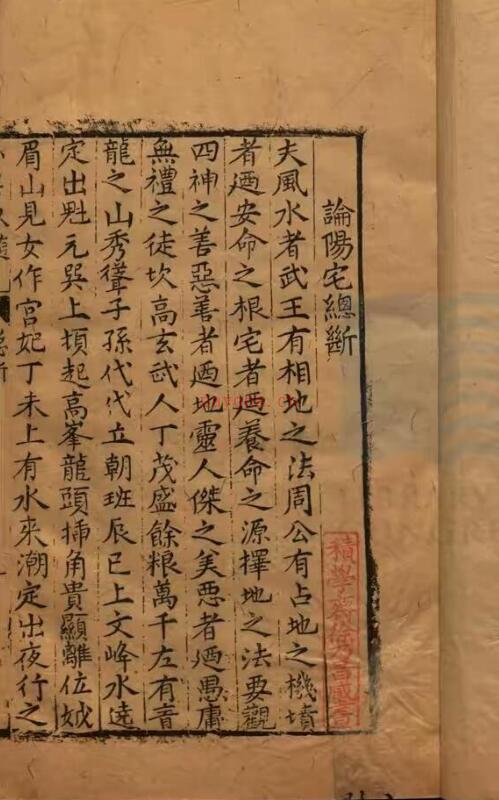 論陽宅總斷
夫風水者武王有相地之法周公有占地之機墳
者廼安命之根宅者廼養命之源擇地之法要觀
四神之善惡善者廼地靈人傑之美惡者廼愚庸
無禮之徒坎高玄武人丁茂盛餘粮萬千左有青
龍之山秀聳子孫代代立朝班辰巳上文峰水遶
定出魁元巽上項起高峯龍頭揷角貴顯離位娥
眉山見女作宮妃丁未上有水來潮定出夜行之
積學齋徐乃昌藏書